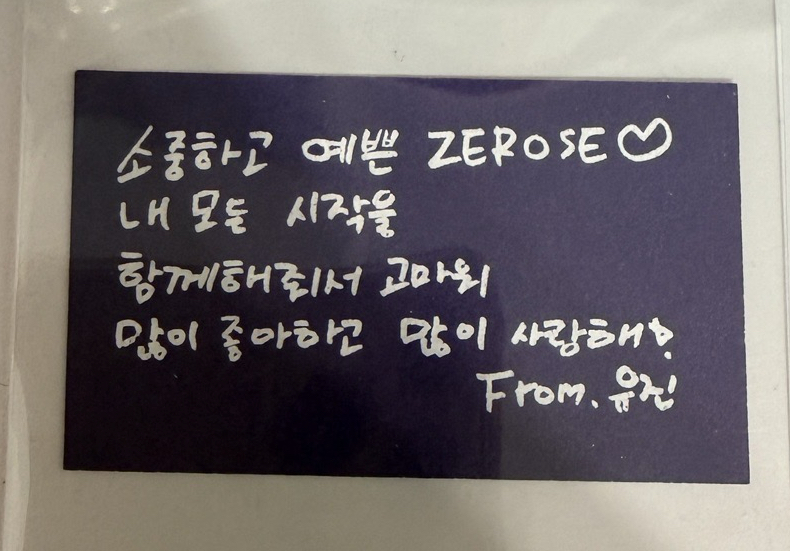 소중하고 예쁜 ZEROSE♡
내 모든 시작을
함께해줘서 고마워
많이 좋아하고 많이 사랑해♡
From. 유진